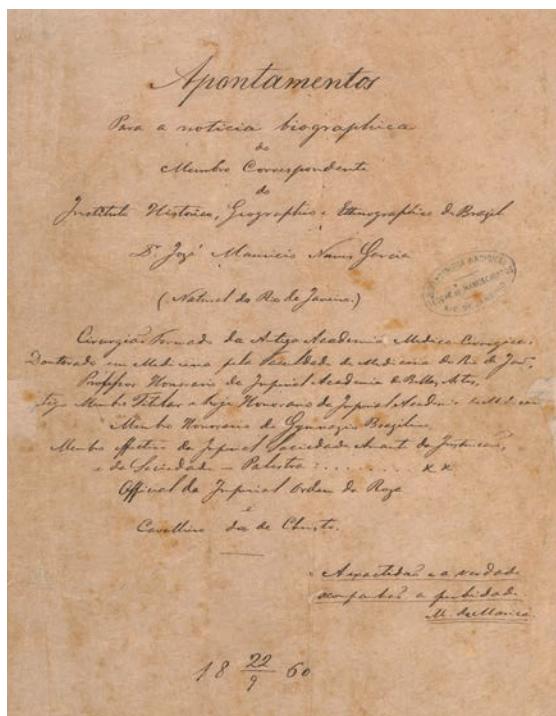 Apontamentos
Para a noticia biographica
do
Membro Correspondente
do
Instituto Historico, Geographico e Ethnographico do Brazil
Dr. José Mauricio Nunes Garcia
(Natural do Rio de Janeiro.)
Cirurgião Formado da Antiga Academia Medico Cirurgica:
Doutorado em Medicina pela Faculdade de Medicina do Rio de Janº,
Professor Honorario da Imperial Academia de Bellas Artes,
Membro Titular e hoje Honorario da Imperial Academia de Medicina
Membro Honorario do Gymnasio Brazileiro,
Membro effectivo da Imperial Sociedade Amante da Instrucção,
e da Sociedade – Palestra: . . . . . . . . x x
Official da Imperial Ordem da Roza
e
Cavalleiro da de Christo.
A exactidão e a verdade
acompanhão a probidade
M. de Maricá
18 22/9 60